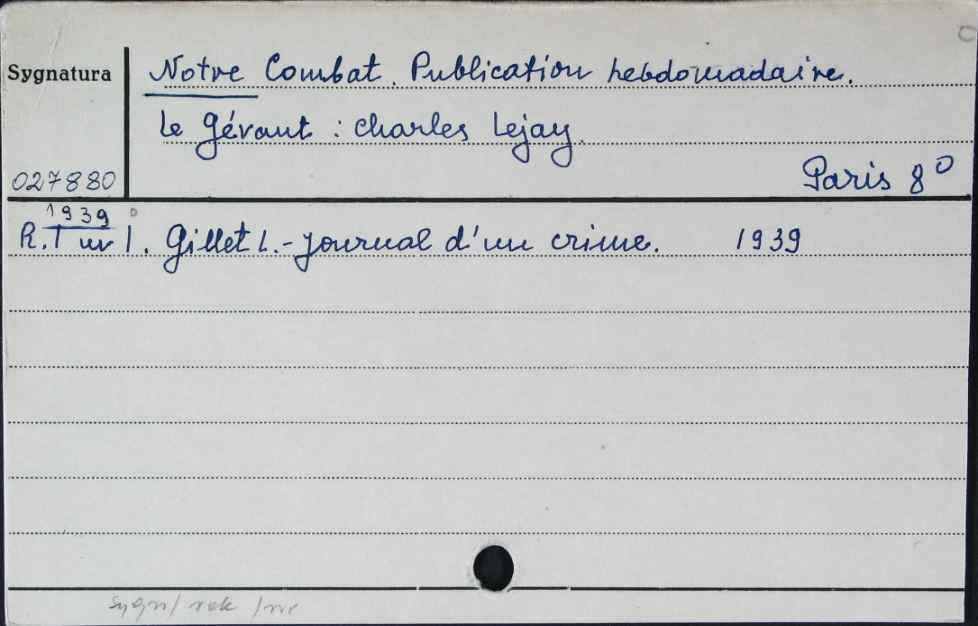 Sygnatura
Notre Combat. Publication hebdomadaire.
Le Gérant : Charles Lejay.
027880
Paris 8°
1939
R. I nr 1. Gillet L.- Journal d'un crime. 1939
sygn/ rok /nr